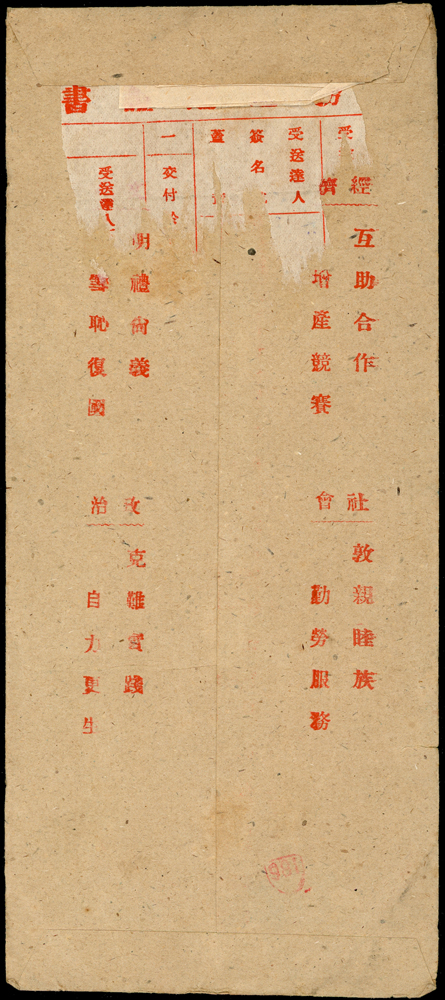 書
受送達人
簽名
蓋
一
交付於
受送達人
經濟
互助合作
增產競賽
明禮尚義
雪恥復國
社會
敦親睦族
勤勞服務
政治
克難實踐
自力更生